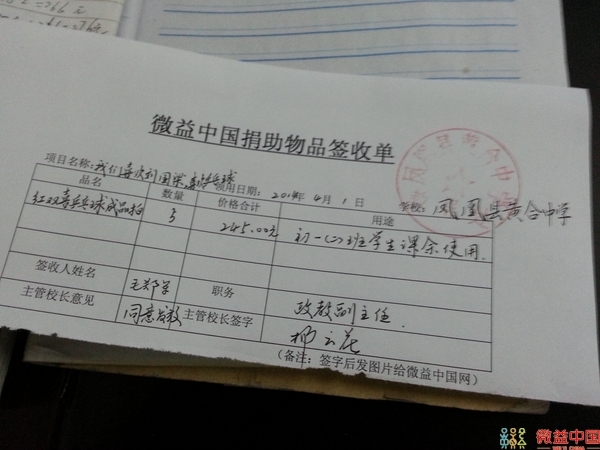 微益中国捐助物品签收单
项目名称:我们喜欢利国梁,喜欢乒乓球 领用日期: 2014年 4月 1日 学校: 凤凰县黄合中学
品名 数量 价格合计 用途
红双喜乒乓球成品拍 5 245.00元 初一(二)班学生课余使用.
签收人姓名 职务 政教副主任.
主管校长意见 同意发放 主管校长签字
(备注:签字后发图片给微益中国网)
微益中国